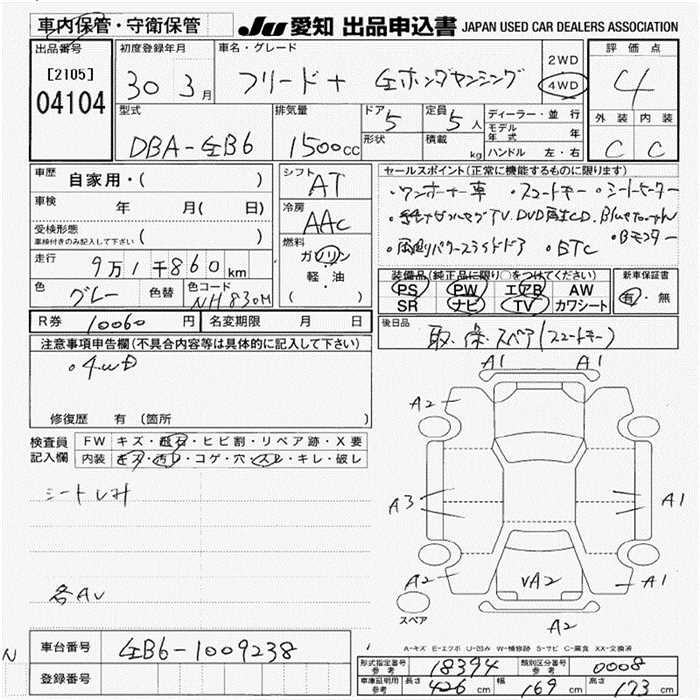 車内保管・守衛保管
JU 愛知 出品申込書 JAPAN USED CAR DEALERS ASSOCIATION
出品番号
[2105]
04104
初度登録年月
30 3月
車名・グレード
フリード+ 全ホンダセンシング
2WD
4WD
評価点
4
外装 内装
C C
型式
DBA-GB6
排気量
1500cc
ドア 5
形状
定員 5人
積載 kg
ディーラー・並行
モデル年式 年
ハンドル 左・右
車歴 自家用・( )
車検 年 月( 日)
受検形態
車検付きのみ記入して下さい ( )
走行 9万1千860km
色 グレー 色替 色コード NH830M
シフト AT
冷房 AAC
燃料
ガソリン
軽・油
( )
セールスポイント(正常に機能するものに限ります)
・ワンオーナー車 ・スマートキー ・シートヒーター
TV.DVD再生.CD.Bluetooth
・両側パワースライドドア ・ETC ・Bモニター
装備品(純正品に限り○をつけてください)
PS PW エアB AW
SR ナビ TV カワシート
新車保証書
有・無
R券 10060円 名変期限 月 日
後日品 取.保.スペア(スマートキー)
注意事項申告欄(不具合内容等は具体的に記入して下さい)
・4WD
修復歴 有 (箇所
検査員記入欄
FW キズ・飛石・ヒビ割・リペア跡・X要
内装 キズ・汚レ・コゲ・穴・スレ・キレ・破レ
シートしみ
各AU
A1 A1
A2
A3 A1
A2 VA2 A1
スペア
A2
A-キズ E-エクボ U-凹み W-補修跡 S-サビ C-腐食 XX-交換済
N
車台番号 GB6-1009238
登録番号
形式指定番号 参考 18394 類別区分番号 参考 0008
車庫証明用 参考 長さ 426cm 幅 169cm 高さ 173cm